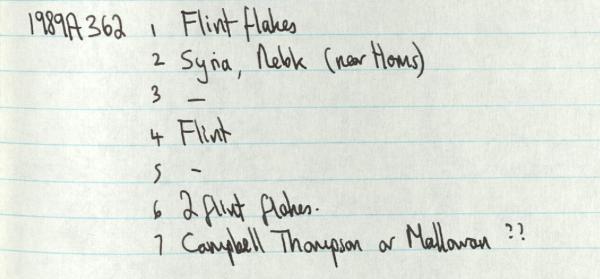 1989A362 1 Flint flakes
2 Syria, Nebk (near Homs)
3 —
4 Flint
5 -
6 2 flint flakes.
7 Campbell Thompson or Mallowan ??